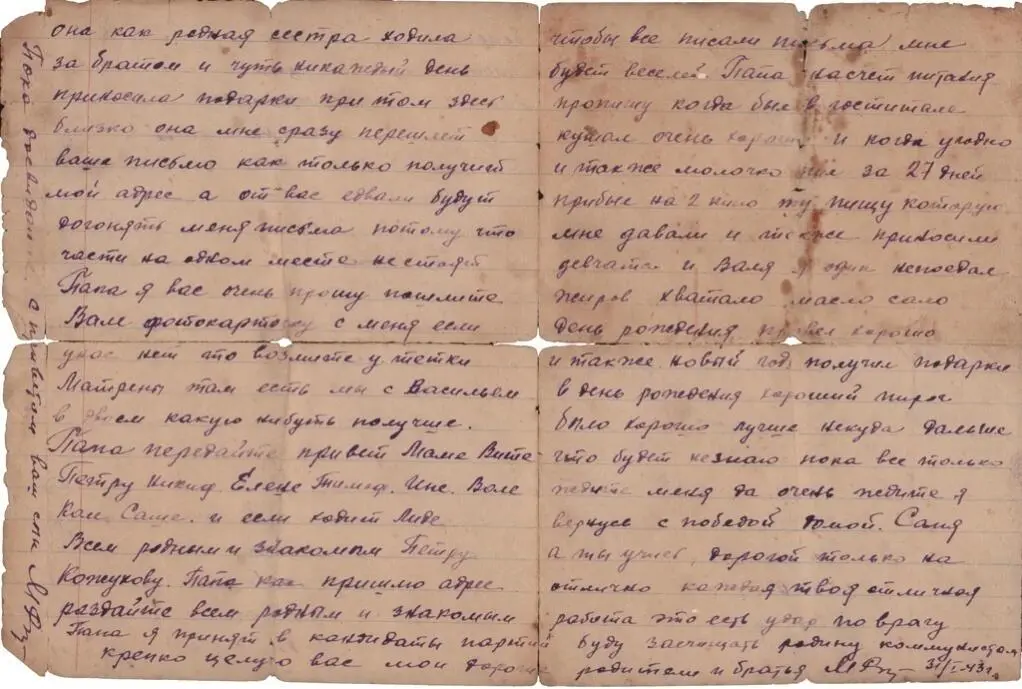 она как родная сестра ходила
за братом и чуть никаждый день
приносила подарки при том здесь
близко она мне сразу перешлет
ваше письмо как только получит
мой адрес а от вас едвали будут
догонять меня письма потому что
части на одном месте не стоят
Папа я вас очень прошу пошлите
Вале фотокарточку с меня если
у вас нет то возмите у тетки
Матрены там есть мы с Васильем
в двоем какую нибуть получше.
Папа передайте привет Маме Вите
Петру Никиф Елене Тимоф. Ине. Воле
Кап Саше. и если ходит Лиде
Всем родным и знакомым Петру
Кожукову. Папа как пришлю адрес
раздайте всем родным и знакомым
Папа я принят в кандидаты партии
крепко целую вас мои дорогие
Пока досвидание, а приветом ваш сын
чтобы все писали письма мне
будет веселей Папа насчет питания
пропишу когда был в госпитале
кушал очень хорошо и когда угодно
и также молочко пил за 27 дней
прибыл на 2 кило ту пищу которую
мне давали и также приносили
девчата и Валя я один непоедал
жиров хватало масло сало
день рождения провел хорошо
и также новый год получил подарки
в день рождения хороший пирог
было хорошо лучше некуда дальше
что будет незнаю пока все только
ждите меня да очень ждите я
вернусь с победой домой. Саня
а ты учись, дорогой только на
отлично каждая твоя отличная
работа это есть удар по врагу
Буду защищать родину коммунистом
родители и братья 31/I-43г.